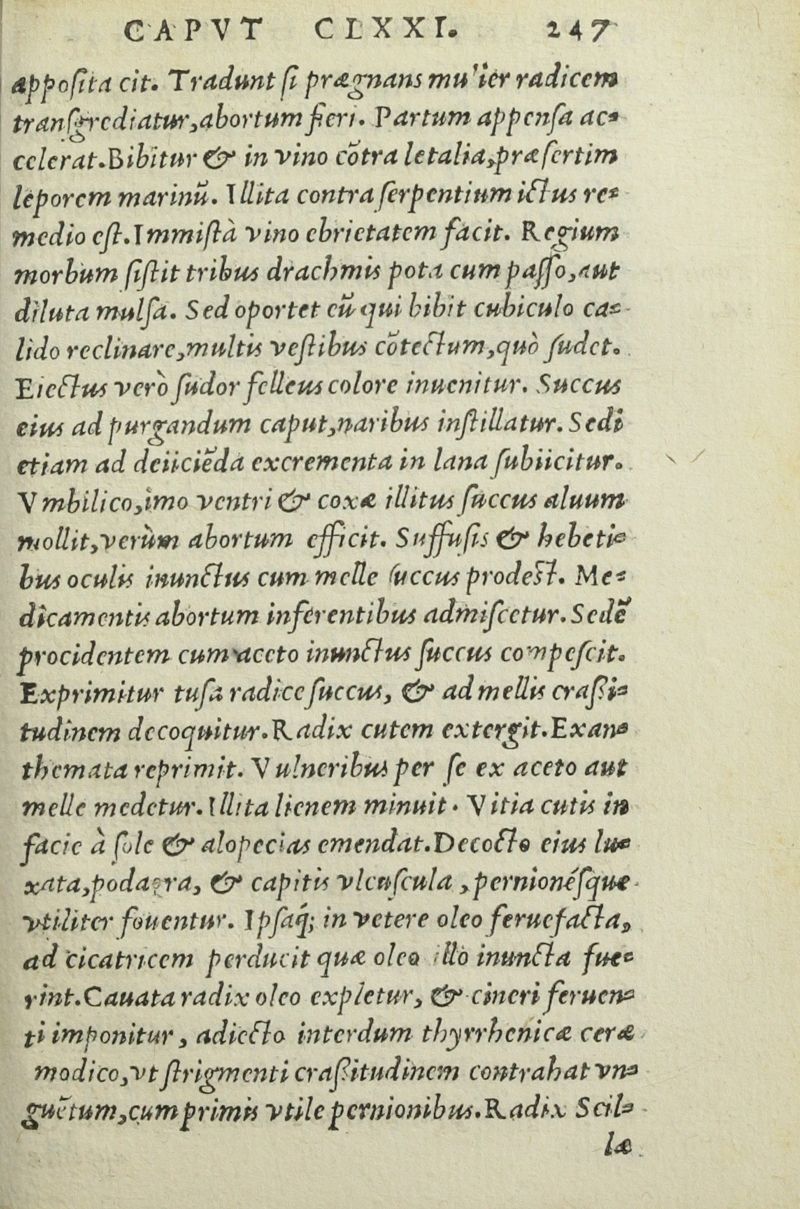 CAPVT CLXXI. 247
appoſita cit. Tradunt ſi prægnans mulier radicem
tranſgrediatur, abortum fieri. Partum appenſa ac-
celerat. Bibitur & in vino cõtra letalia, præſertim
leporem marinũ. Illita contra ſerpentium ictus re-
medio eſt. Immiſtà vino ebrietatem facit. Regium
morbum ſiſtit tribus drachmis pota cum paſſo, aut
diluta mulſa. Sed oportet eũ qui bibit cubiculo ca-
lido reclinare, multis veſtibus cõtectum, quò ſudet.
Eiectus verò ſudor felleus colore inuenitur. Succus
eius ad purgandum caput, naribus inſtillatur. Sedi
etiam ad deiiciẽda excrementa in lana ſubiicitur.
Vmbilico, imo ventri & coxæ illitus ſuccus aluum
mollit, verùm abortum efficit. Suffuſis & hebeti-
bus oculis inunctus cum melle ſuccus prodeſt. Me-
dicamentis abortum inferentibus admiſcetur. Sedẽ
procidentem cum aceto inunctus ſuccus compeſcit.
Exprimitur tuſa radice ſuccus, & ad mellis craſſi-
tudinem decoquitur. Radix cutem extergit. Exan-
themata reprimit. Vulneribus per ſe ex aceto aut
melle medetur. Illita lienem minuit. Vitia cutis in
facie à ſole & alopecias emendat. Decocto eius lu-
xata, podagra, & capitis vlcuſcula, pernionéſque
vtiliter fouentur. Ipſaq; in vetere oleo feruefacta,
ad cicatricem perducit quæ oleo illo inuncta fue-
rint. Cauata radix oleo expletur, & cineri feruen-
ti imponitur, adiecto interdum thyrrhenicæ ceræ
modico, vt ſtrigmenti craſſitudinem contrahat vn-
guẽtum, cum primis vtile pernionibus. Radix Scil-
læ